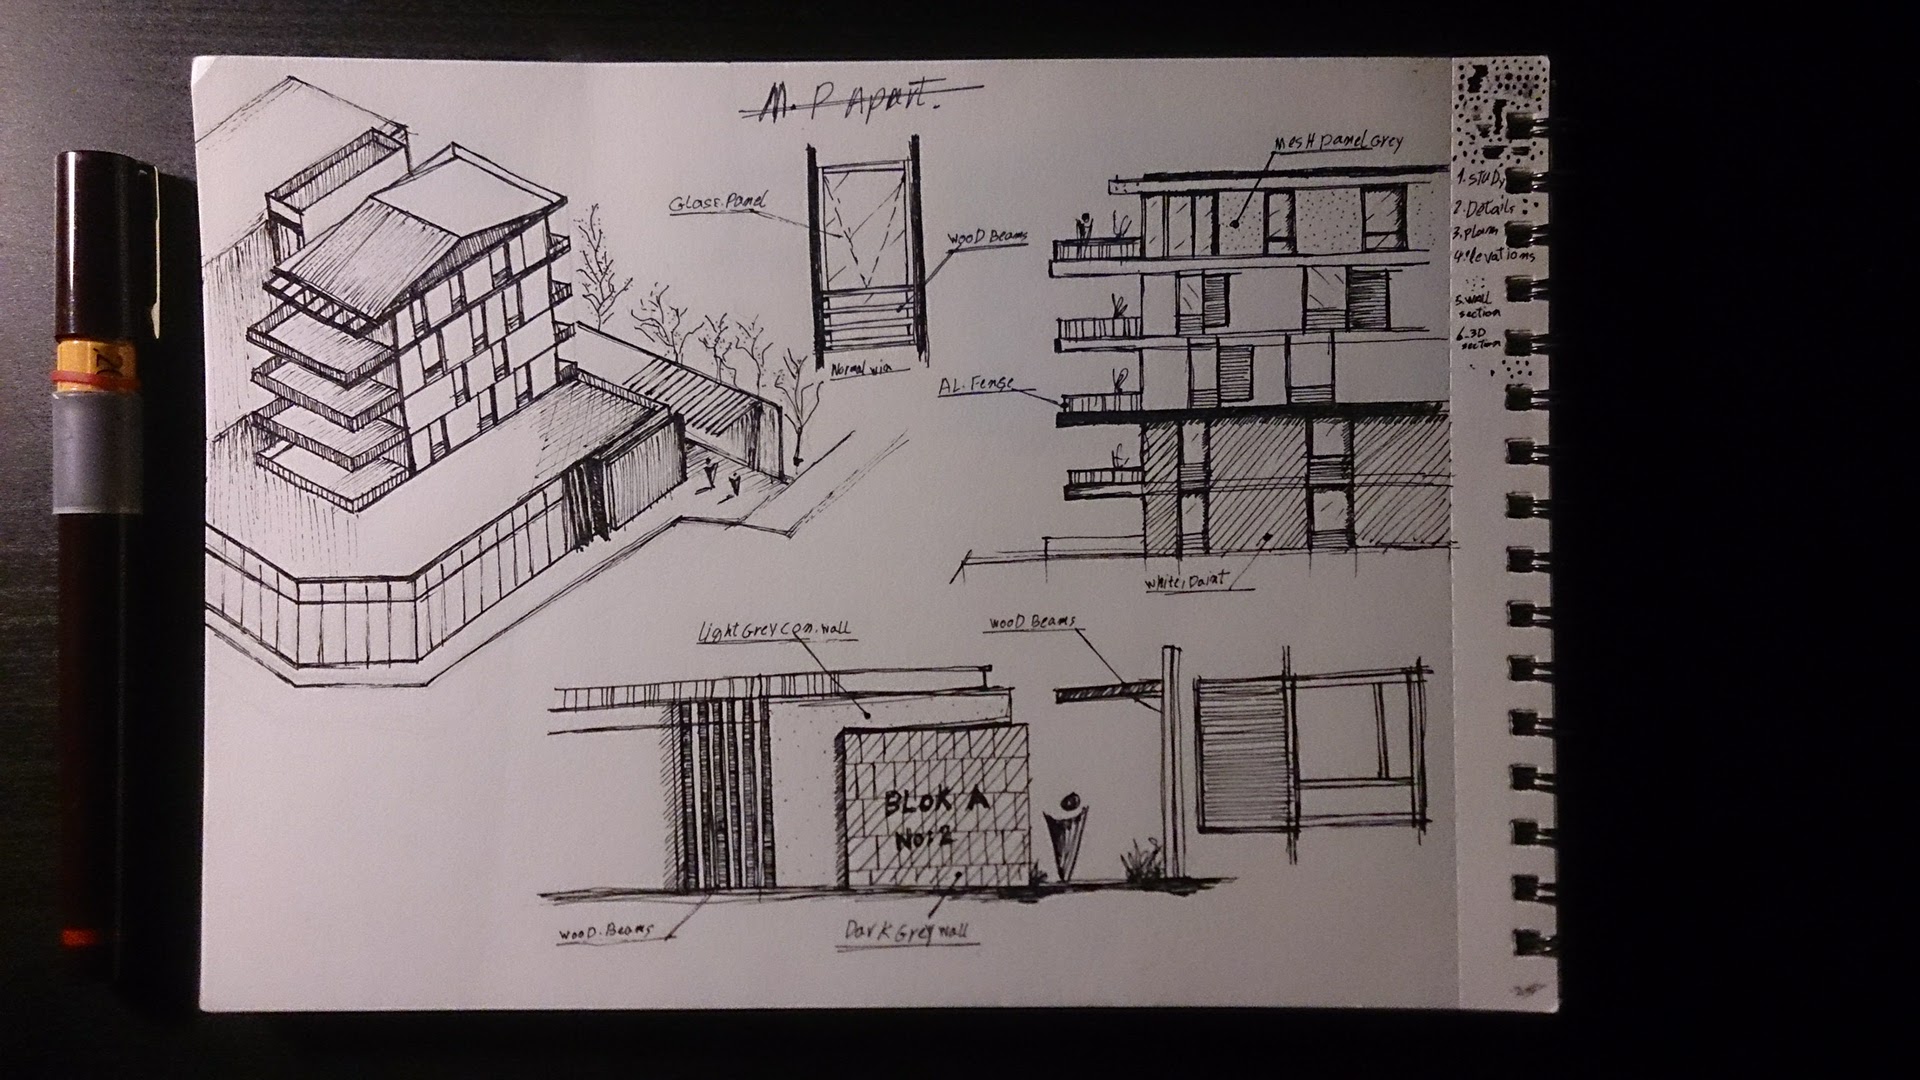 M. P Apart.
Glass.Panel
wooD Beams
Normal win
MesH panel Grey
AL. Fense
white, paint
1. STUDy
2. Details
3. plans
4. elevations
5. wall
section
6. 3D
section
light Grey con. wall
wooD Beams
BLoK A
No: 2
wooD. Beams
Dark Grey wall